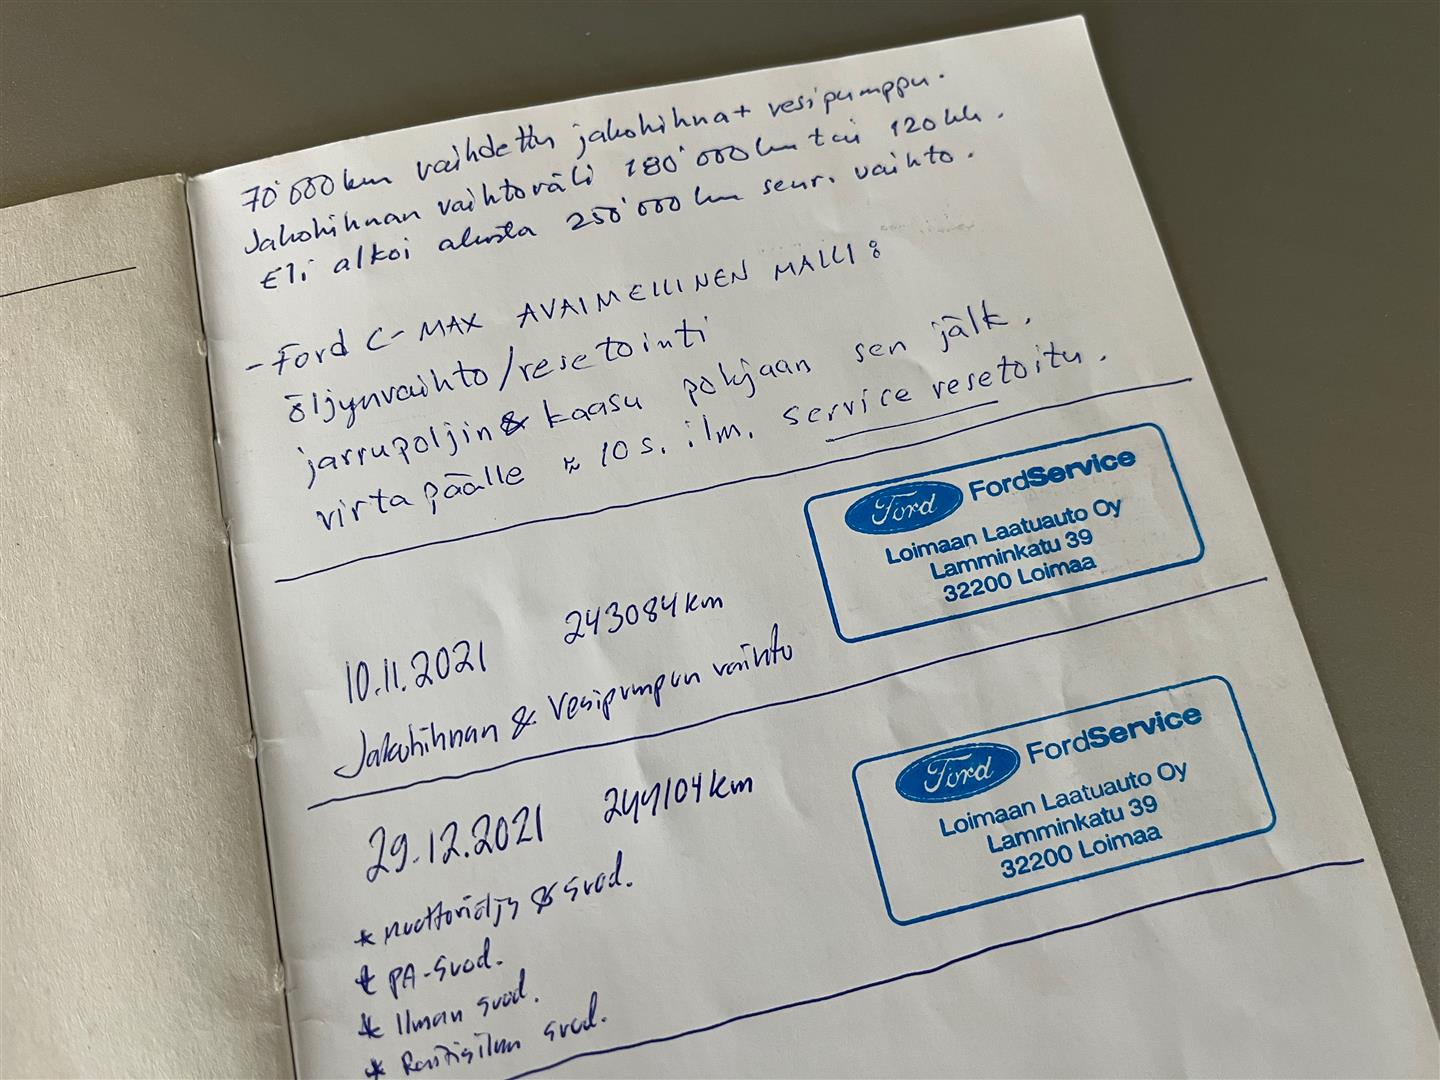 70'000km vaihdettu jakohihna+ vesipumppu.
Jakohihnan vaihtoväli 180'000km tai 120kk.
Eli alkoi alusta 250'000km seur. vaihto.
- Ford C-MAX AVAIMELLINEN MALLI:
öljynvaihto/resetointi
jarrupoljin & kaasu pohjaan sen jälk.
virta päälle ≈ 10s. ilm. service resetoitu.
Ford FordService
Loimaan Laatuauto Oy
Lamminkatu 39
32200 Loimaa
10.11.2021 243084km
Jakohihnan & Vesipumpun vaihto
Ford FordService
Loimaan Laatuauto Oy
Lamminkatu 39
32200 Loimaa
29.12.2021 244104km
* Moottoriöljy & svod.
* PA-svod.
* Ilman svod.
* Raitisilman svod.